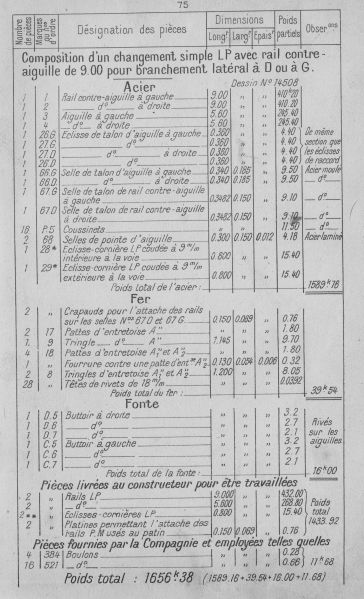 75
Nombre de pièces
Marques ou Nos d'ordre
Désignation des pièces
Dimensions
Longr
Largr
Épaisr
Poids partiels
Observons
Composition d'un changement simple LP avec rail contre-
aiguille de 9.00 pour branchement latéral à D ou à G.
Acier
Dessin No 14508
1 1 Rail contre-aiguille à gauche 9.00 " " 410k20
1 2 — do — à droite 9.00 " " 410.20
1 3 Aiguille à gauche 5.60 " " 245.40
1 4 — do — à droite 5.60 " " 245.40
1 26G Eclisse de talon d'aiguille à gauche 0.360 " " 4.40 De même
1 27G do 0.360 " " 4.40 section que
1 27D do à droite 0.360 " " 4.40 les éclisses
1 26D do 0.360 " " 4.40 de raccord
1 66G Selle de talon d'aiguille à gauche 0.340 0.185 " 9.50 Acier moulé
1 66D do à droite 0.340 0.185 " 9.50 do
1 67G Selle de talon de rail contre-aiguille
à gauche 0.3462 0.150 " 9.10 do
1 67D Selle de talon de rail contre-aiguille
à droite 0.3462 0.150 " 9.10 do
18 P.5 Coussinets " " " 11.50 do
2 68 Selles de pointe d'aiguille 0.300 0.150 0.012 4.18 Acier laminé
1 28* Eclisse-cornière LP coudée à 9m/m
intérieure à la voie 0.800 " " 15.40
1 29* Eclisse-cornière LP coudée à 9m/m
extérieure à la voie 0.800 " " 15.40
Poids total de l'acier: 1589k16
Fer
2 " Crapauds pour l'attache des rails
sur les selles Nos 67D et 67G 0.150 0.069 " 0.76
2 17 Pattes d'entretoise " " " 1.80
1 9 Tringle — do — A" 1.145 " " 9.70
4 18 Pattes d'entretoise A" et A"2 " " " 1.80
1 " Fourrure contre une patte d'entse A"2 0.130 0.024 0.006 0.32
2 8 Tringles d'entretoise A" et A"2 1.200 " " 8.05
28 " Têtes de rivets de 18m/m " " " 0.0392
Poids total du fer: 39k54
Fonte
1 D.5 Buttoir à droite " " " 3.2
1 D.6 do " " " 2.7 Rivés
1 D.7 do " " " 2.1 sur les
1 C.5 Buttoir à gauche " " " 3.2 aiguilles
1 C.6 do " " " 2.7
1 C.7 do " " " 2.1
Poids total de la fonte: 16k00
Pièces livrées au constructeur pour être travaillées
2 " Rails LP 9.000 " " 432.00
2 " do 5.600 " " 268.80 Poids
2** " Eclisses-cornières LP 0.800 " " 15.40 total
2 " Platines permettant l'attache des 1433.92
rails P.M usés au patin 0.150 0.069 " 0.76
Pièces fournies par la Compagnie et employées telles quelles
4 384 Boulons " " " 0.28
16 521 do " " " 0.66 11k68
Poids total: 1656k38 (1589.16+39.54+16.00+11.68)